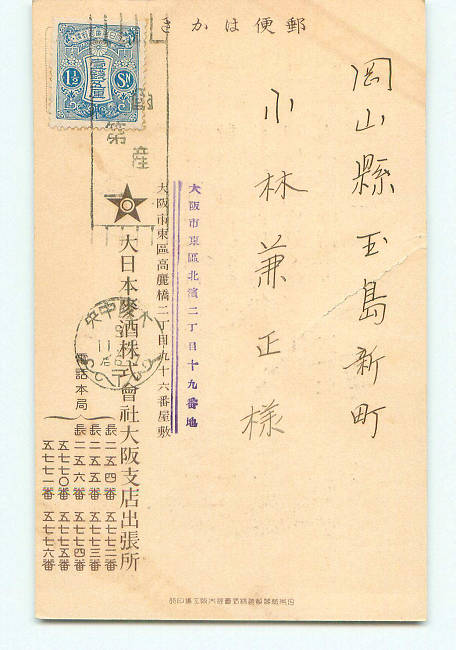 郵便はかき
岡山縣玉島新町
小林兼正様
大阪市東區北濱二丁目十九番地
大阪市東區高麗橋二丁目九十六番屋敷
大日本麥酒株式會社大阪支店出張所
電話本局
長二五四番 五七七二番
長二五五番 五七七三番
長二五六番 五七七四番
五七七〇番 五七七五番
五七七一番 五七七六番
1½ Sn.
産
中央